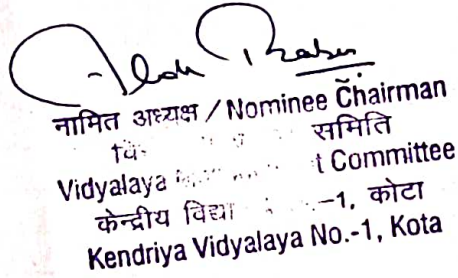 नामित अध्यक्ष / Nominee Chairman
समिति
Vidyalaya t Committee
केन्द्रीय विद्या -1, कोटा
Kendriya Vidyalaya No.-1, Kota